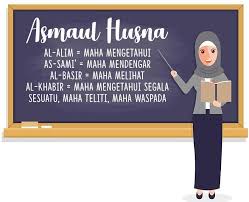 Asmaul Husna
AL-ALIM = MAHA MENGETAHUI
AS-SAMI' = MAHA MENDENGAR
AL-BASIR = MAHA MELIHAT
AL-KHABIR = MAHA MENGETAHUI SEGALA
SESUATU, MAHA TELITI, MAHA WASPADA